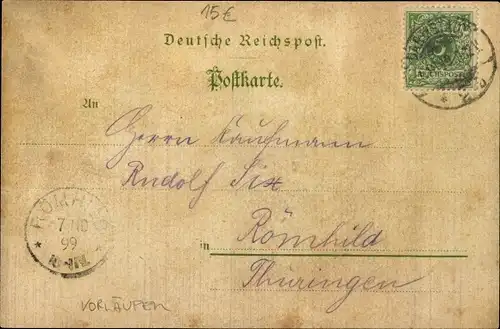 15€
Deutsche Reichspost.
Postkarte.
5
REICHSPOST
An
Herrn Kaufmann
Rudolf Six
in Römhild
Thüringen
RÖMHILD
7 NO
99
VORLÄUFER